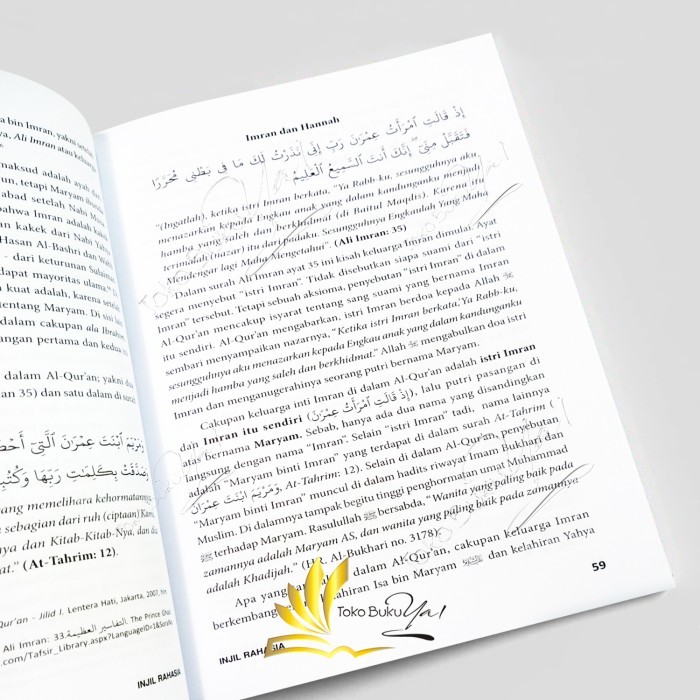 a bin Imran, yakni
ya, Ali Imran atau keluarga
maksud adalah ayah dari
un, tetapi Maryam ibunda
abad setelah Nabi Musa
bahwa Imran adalah kakek
an kakek dari Nabi Yahya
Hasan Al-Bashri dan
- dari keturunan Sulaiman
dapat mayoritas ulama."
kuat adalah, karena setelah
tentang Maryam. Di sisi lain
dalam cakupan ala Ibrahim
angan pertama dan kedua ini
dalam Al-Qur'an; yakni dua
an 35) dan satu dalam di surah
وَمَرْيَمَ ابْنَتَ عِمْرٰنَ الَّتِيْٓ
وَصَدَّقَتْ بِكَلِمٰتِ رَبِّهَا
yang memelihara kehormatannya,
n sebagian dari ruh (ciptaan) Kami,
nya dan Kitab-Kitab-Nya, dan dia
at." (At-Tahrim: 12).
Qur'an - Jilid I. Lentera Hati, Jakarta, 2007, hlm
Ali Imran: 33. التفاسير العظيمة. The Prince
.com/Tafsir_Library.aspx?LanguageID=1&
INJIL RAHASIA
Imran dan Hannah
اِذْ قَالَتِ امْرَاَتُ عِمْرٰنَ رَبِّ اِنِّيْ نَذَرْتُ لَكَ مَا فِيْ بَطْنِيْ مُحَرَّرًا
فَتَقَبَّلْ مِنِّيْ ۚ اِنَّكَ اَنْتَ السَّمِيْعُ الْعَلِيْمُ
"(Ingatlah), ketika istri Imran berkata, "Ya Rabb-ku, sesungguhnya aku
menazarkan kepada Engkau anak yang dalam kandunganku menjadi
hamba yang saleh dan berkhidmat (di Baitul Maqdis). Karena itu
terimalah (nazar) itu dari padaku. Sesungguhnya Engkaulah Yang Maha
Mendengar lagi Maha Mengetahui". (Ali Imran: 35)
Dalam surah Ali Imran ayat 35 ini kisah keluarga Imran dimulai. Ayat
segera menyebut "istri Imran". Tidak disebutkan siapa suami dari "istri
Imran" tersebut. Tetapi sebuah aksioma, penyebutan "istri Imran" di dalam
Al-Qur'an mencakup isyarat tentang sang suami yang bernama Imran
itu sendiri. Al-Qur'an mengabarkan, istri Imran berdoa kepada Allah ﷻ
sembari menyampaikan nazarnya, "Ketika istri Imran berkata,'Ya Rabb-ku,
sesungguhnya aku menazarkan kepada Engkau anak yang dalam kandunganku
menjadi hamba yang saleh dan berkhidmat." Allah ﷻ mengabulkan doa istri
Imran dan menganugerahinya seorang putri bernama Maryam.
Cakupan keluarga inti Imran di dalam Al-Qur'an adalah istri Imran
dan Imran itu sendiri (اِذْ قَالَتِ امْرَاَتُ عِمْرٰنَ), lalu putri pasangan di
atas bernama Maryam. Sebab, hanya ada dua nama yang disandingkan
langsung dengan nama "Imran". Selain "istri Imran" tadi, nama lainnya
adalah "Maryam binti Imran" yang terdapat di dalam surah At-Tahrim (
وَمَرْيَمَ ابْنَتَ عِمْرٰنَ, At-Tahrim: 12). Selain di dalam Al-Qur'an, penyebutan
"Maryam binti Imran" muncul di dalam hadits riwayat Imam Bukhari dan
Muslim. Di dalamnya tampak begitu tinggi penghormatan umat Muhammad
ﷺ terhadap Maryam. Rasulullah ﷺ bersabda, "Wanita yang paling baik pada
zamannya adalah Maryam AS, dan wanita yang paling baik pada zamannya
adalah Khadijah." (HR. Al-Bukhari no. 3178).
Apa yang dalam Al-Qur'an, cakupan keluarga Imran
berkembang kelahiran Isa bin Maryam dan kelahiran Yahya
59
Toko Buku Ya!
INJIL RAHASIA